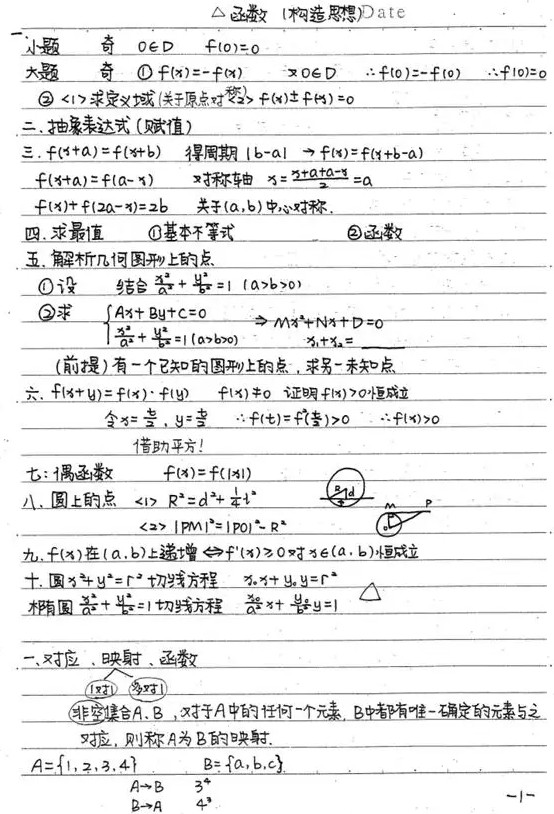 △ 函数 (构造思想) Date
一
小题 奇 0∈D f(0)=0
大题 奇 ① f(x)=-f(x) 又0∈D ∴f(0)=-f(0) ∴f(0)=0
② <1> 求定义域(关于原点对称) <2> f(x)±f(-x)=0
二. 抽象表达式 (赋值)
三. f(x+a)=f(x+b) 得周期 |b-a| → f(x)=f(x+b-a)
f(x+a)=f(a-x) 对称轴 x=\frac{x+a+a-x}{2}=a
f(x)+f(2a-x)=2b 关于(a,b)中心对称.
四. 求最值 ①基本不等式 ②函数
五. 解析几何图形上的点
①设 结合 \frac{x²}{a²}+\frac{y²}{b²}=1 (a>b>0)
②求 { Ax+By+C=0
\frac{x²}{a²}+\frac{y²}{b²}=1 (a>b>0) ⇒ Mx²+Nx+D=0
x₁+x₂=____
(前提) 有一个已知的图形上的点, 求另一未知点
六. f(x+y)=f(x)·f(y) f(x)≠0 证明f(x)>0恒成立
令x=\frac{t}{2}, y=\frac{t}{2} ∴f(t)=f²(\frac{t}{2})>0 ∴f(x)>0
借助平方!
七: 偶函数 f(x)=f(|x|)
八. 圆上的点 <1> R²=d²+\frac{1}{4}l² R d
<2> |PM|²=|PO|²-R² M P O
九. f(x)在(a,b)上递增⇔f'(x)≥0对x∈(a,b)恒成立
十. 圆x²+y²=r²切线方程 x₀x+y₀y=r²
椭圆 \frac{x²}{a²}+\frac{y²}{b²}=1切线方程 \frac{x₀}{a²}x+\frac{y₀}{b²}y=1 △
一、对应、映射、函数
1对1 多对1
非空集合A、B, 对于A中的任何一个元素, B中都有唯一确定的元素与之
对应, 则称A为B的映射.
A={1,2,3,4} B={a,b,c}
A→B 3⁴
B→A 4³
-1-